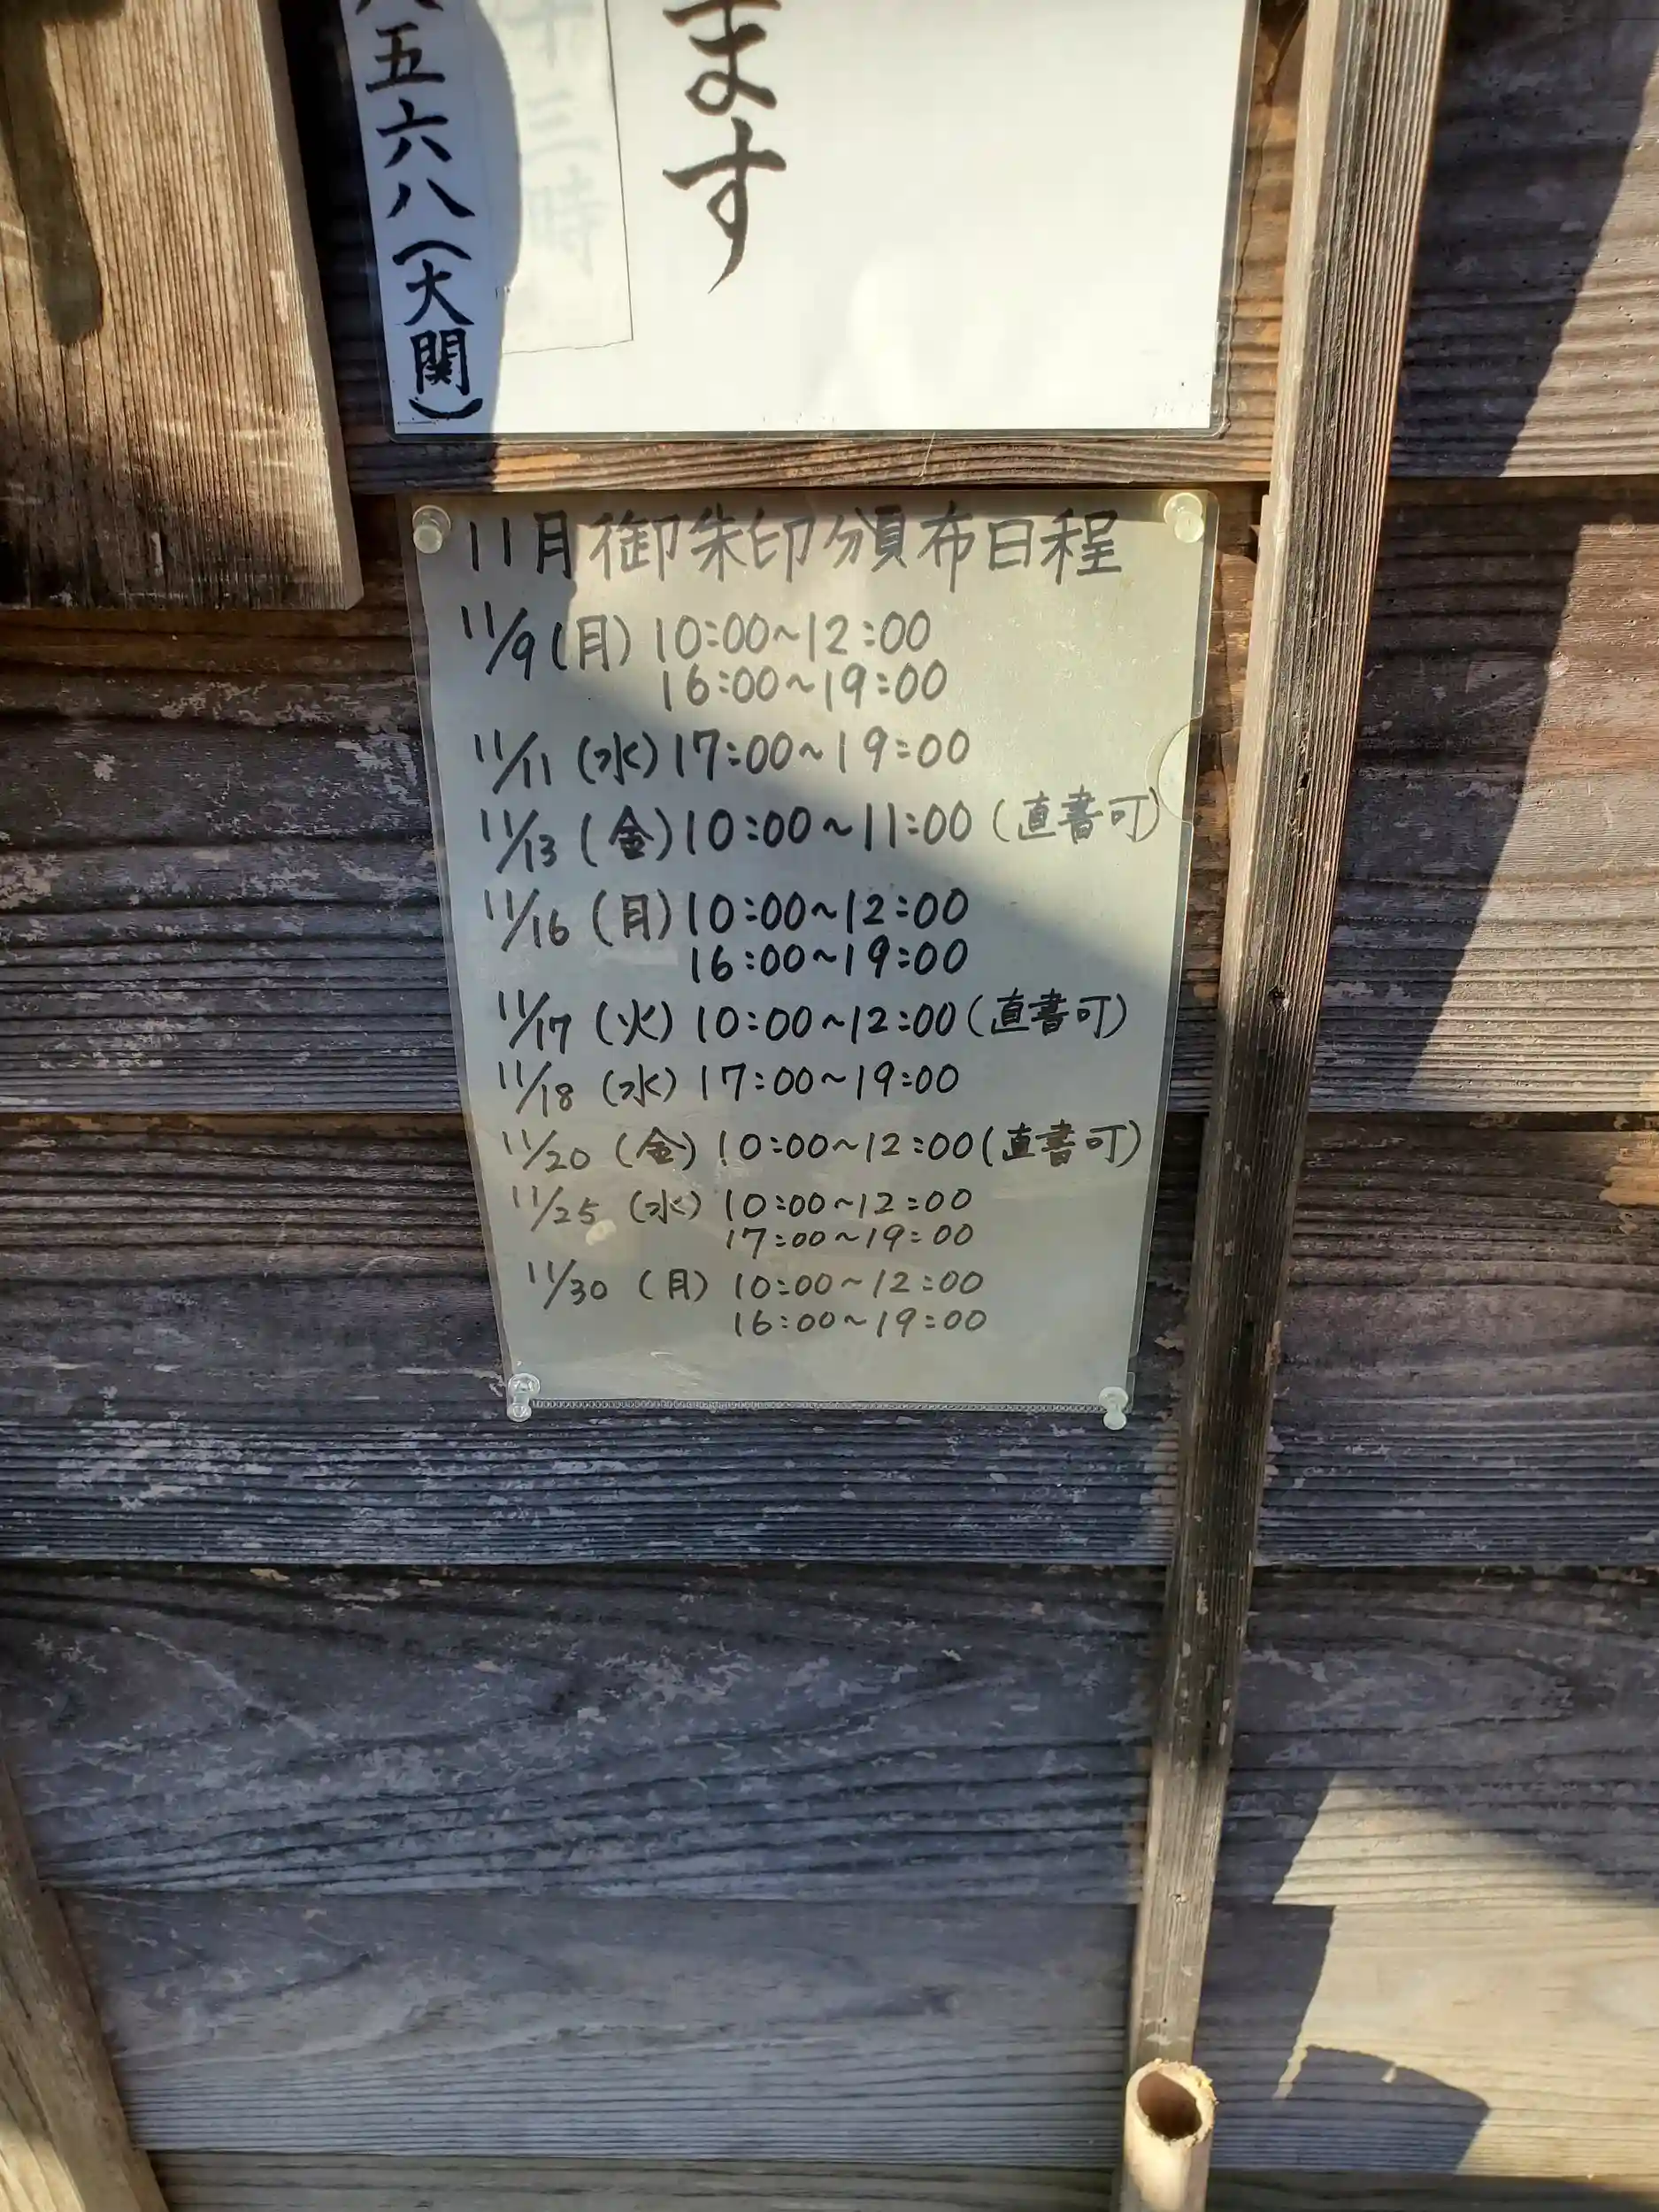 ます
十三時
五六八(大関)
11月御朱印頒布日程
11/9(月) 10:00~12:00
16:00~19:00
11/11(水) 17:00~19:00
11/13(金) 10:00~11:00(直書可)
11/16(月) 10:00~12:00
16:00~19:00
11/17(火) 10:00~12:00(直書可)
11/18(水) 17:00~19:00
11/20(金) 10:00~12:00(直書可)
11/25(水) 10:00~12:00
17:00~19:00
11/30(月) 10:00~12:00
16:00~19:00